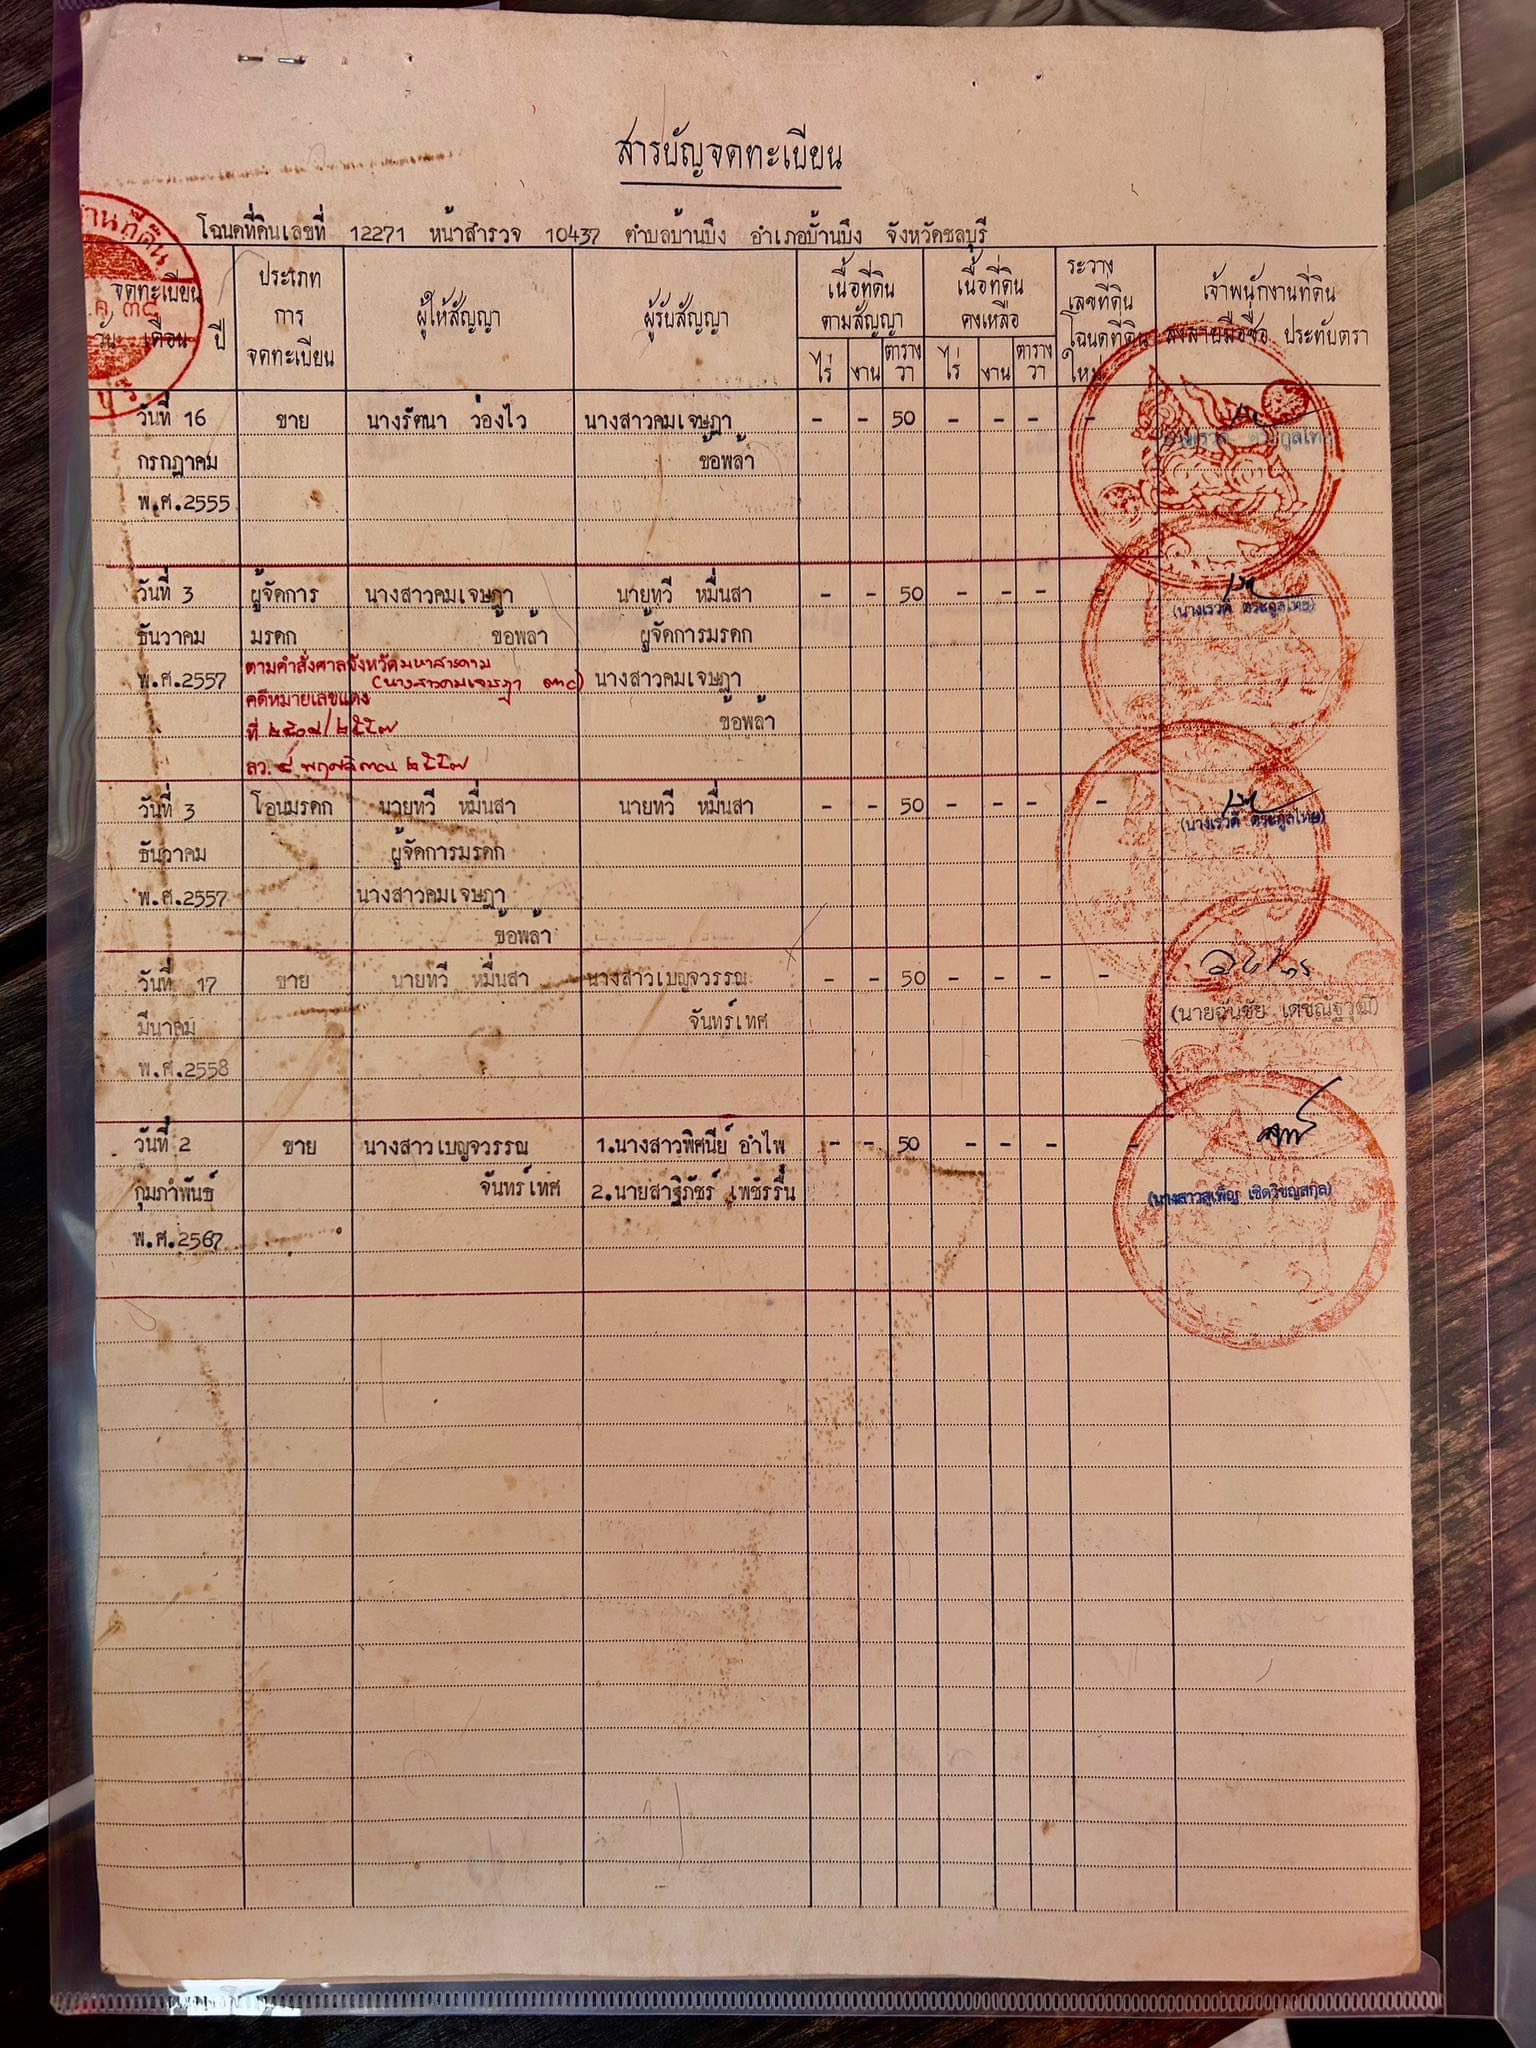 สารบัญจดทะเบียน
โฉนดที่ดินเลขที่ 12271 หน้าสำรวจ 10437 ตำบลบ้านบึง อำเภอบ้านบึง จังหวัดชลบุรี
จดทะเบียน
วัน เดือน ปี
ประเภท
การ
จดทะเบียน
ผู้ให้สัญญา
ผู้รับสัญญา
เนื้อที่ดิน
ตามสัญญา
ไร่ งาน ตาราง
วา
เนื้อที่ดิน
คงเหลือ
ไร่ งาน ตาราง
วา
ระวาง
เลขที่ดิน
โฉนดที่ดิน
ใหม่
เจ้าพนักงานที่ดิน
ลงลายมือชื่อ ประทับตรา
วันที่ 16 ขาย นางรัตนา ว่องไว นางสาวคมเจษฎา - - 50 - - - -
กรกฎาคม ข้อพล้า
พ.ศ.2555
วันที่ 3 ผู้จัดการ นางสาวคมเจษฎา นายทวี หมื่นสา - - 50 - - - -
(นางเรวดี ตระกูลไทย)
ธันวาคม มรดก ข้อพล้า ผู้จัดการมรดก
พ.ศ.2557 ตามคำสั่งศาลจังหวัดมหาสารคาม
(นางสาวคมเจษฎา นางสาวคมเจษฎา
คดีหมายเลขแดง
ข้อพล้า
ที่
ลว. ๔ พฤศจิกายน ๒๕๕๗
วันที่ 3 โอนมรดก นายทวี หมื่นสา นายทวี หมื่นสา - - 50 - - - -
(นางเรวดี ตระกูลไทย)
ธันวาคม ผู้จัดการมรดก
พ.ศ.2557 นางสาวคมเจษฎา
ข้อพล้า
วันที่ 17 ขาย นายทวี หมื่นสา นางสาวเบญจวรรณ - - 50 - - - -
มีนาคม จันทร์เทศ
พ.ศ.2558
วันที่ 2 ขาย นางสาวเบญจวรรณ 1.นางสาวพิศนีย์ อำไพ - - 50 - - - -
กุมภาพันธ์ จันทร์เทศ 2.นายสาฐิภัชร์ เพชรรื่น
พ.ศ.2567